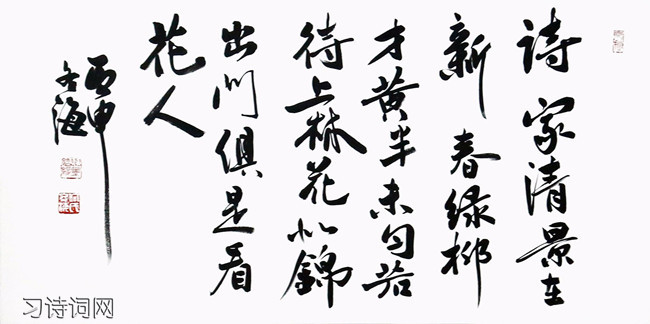 诗家清景在
新春绿柳
才黄半未匀若
待上林花似錦
出门俱是看
花人
丙申
习诗词网